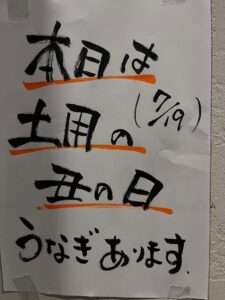 本日は
土用の(7/19)
丑の日
うなぎあります.